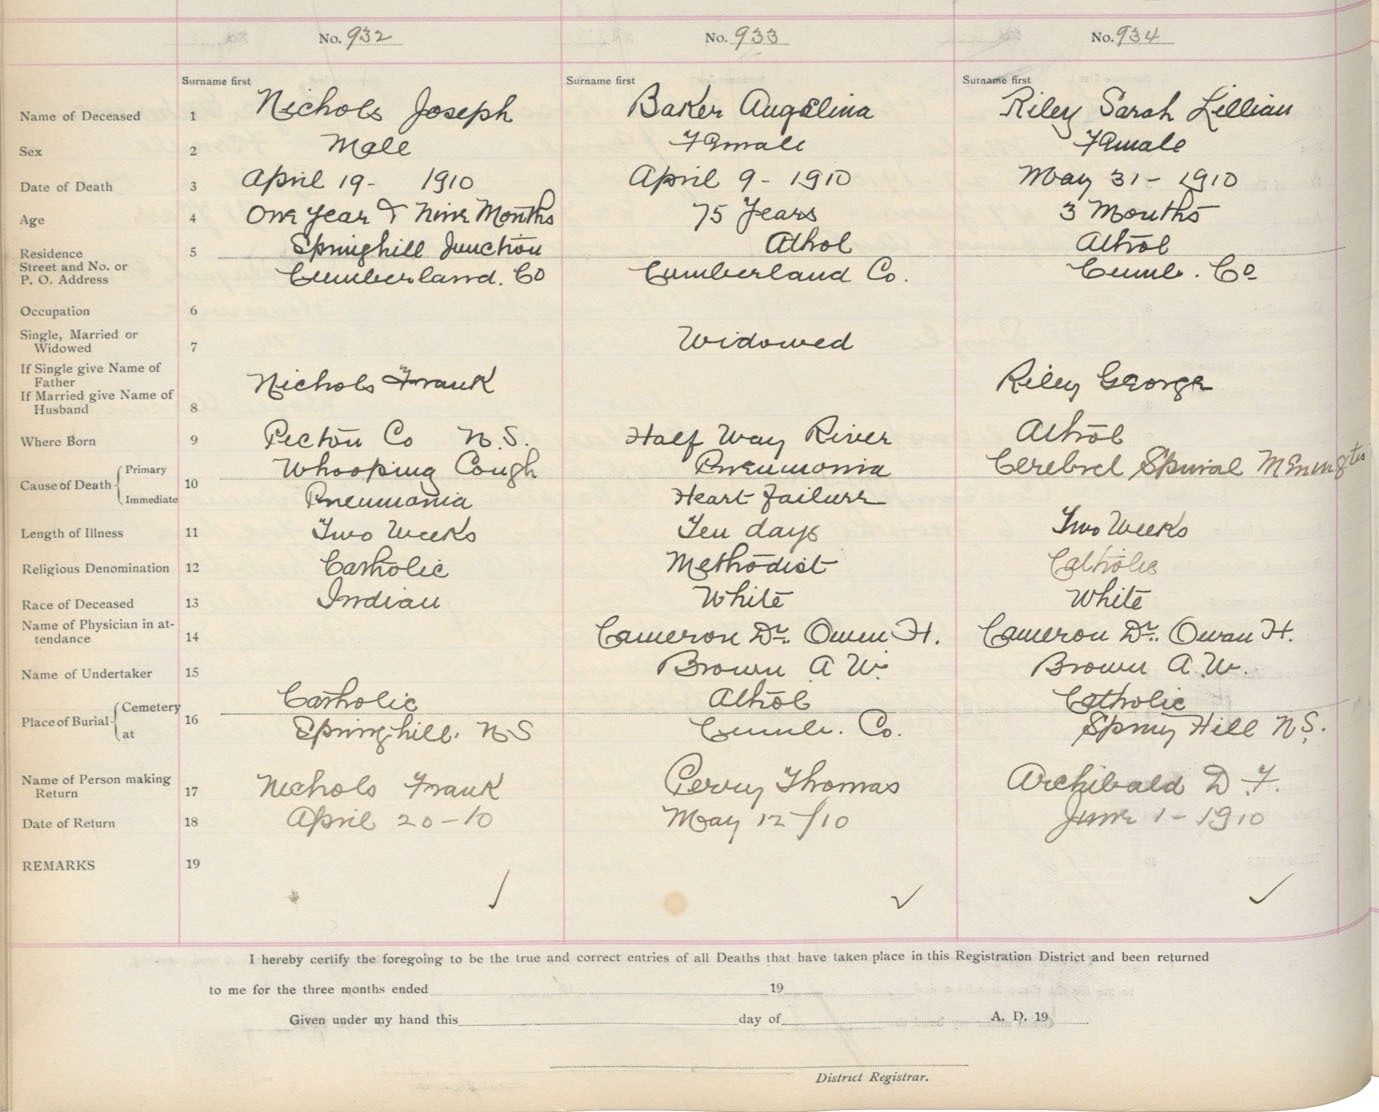 No. 932 No. 933 No. 934
Surname first Surname first Surname first
Name of Deceased 1 Nichols Joseph Baker Angelina Riley Sarah Lillian
Sex 2 Male Female Female
Date of Death 3 April 19 - 1910 April 9 - 1910 May 31 - 1910
Age 4 One Year & Nine Months 75 Years 3 Months
Residence 5 Springhill Junction Athol Athol
Street and No. or
P. O. Address Cumberland. Co Cumberland Co. Cumb. Co
Occupation 6
Single, Married or
Widowed 7 Widowed
If Single give Name of
Father Nichols Frank Riley George
If Married give Name of
Husband 8
Where Born 9 Pictou Co N.S. Half Way River Athol
Cause of Death Primary 10 Whooping Cough Pneumonia Cerebrel Spinal Meningtis
Immediate Pneumonia Heart Failure
Length of Illness 11 Two Weeks Ten days Two Weeks
Religious Denomination 12 Catholic Methodist Catholic
Race of Deceased 13 Indian White White
Name of Physician in at-
tendance 14 Cameron Dr. Owen H. Cameron Dr. Owen H.
Name of Undertaker 15 Brown A W. Brown A.W.
Place of Burial Cemetery 16 Catholic Athol Catholic
at Springhill. NS Cumb. Co. Spring Hill N.S.
Name of Person making
Return 17 Nichols Frank Perry Thomas Archibald D.F.
Date of Return 18 April 20-10 May 12-/10 June 1 - 1910
REMARKS 19
I hereby certify the foregoing to be the true and correct entries of all Deaths that have taken place in this Registration District and been returned
to me for the three months ended 19
Given under my hand this day of A. D. 19
District Registrar.